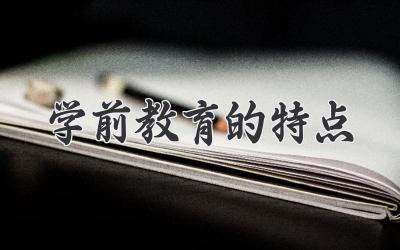 学前教育的特点